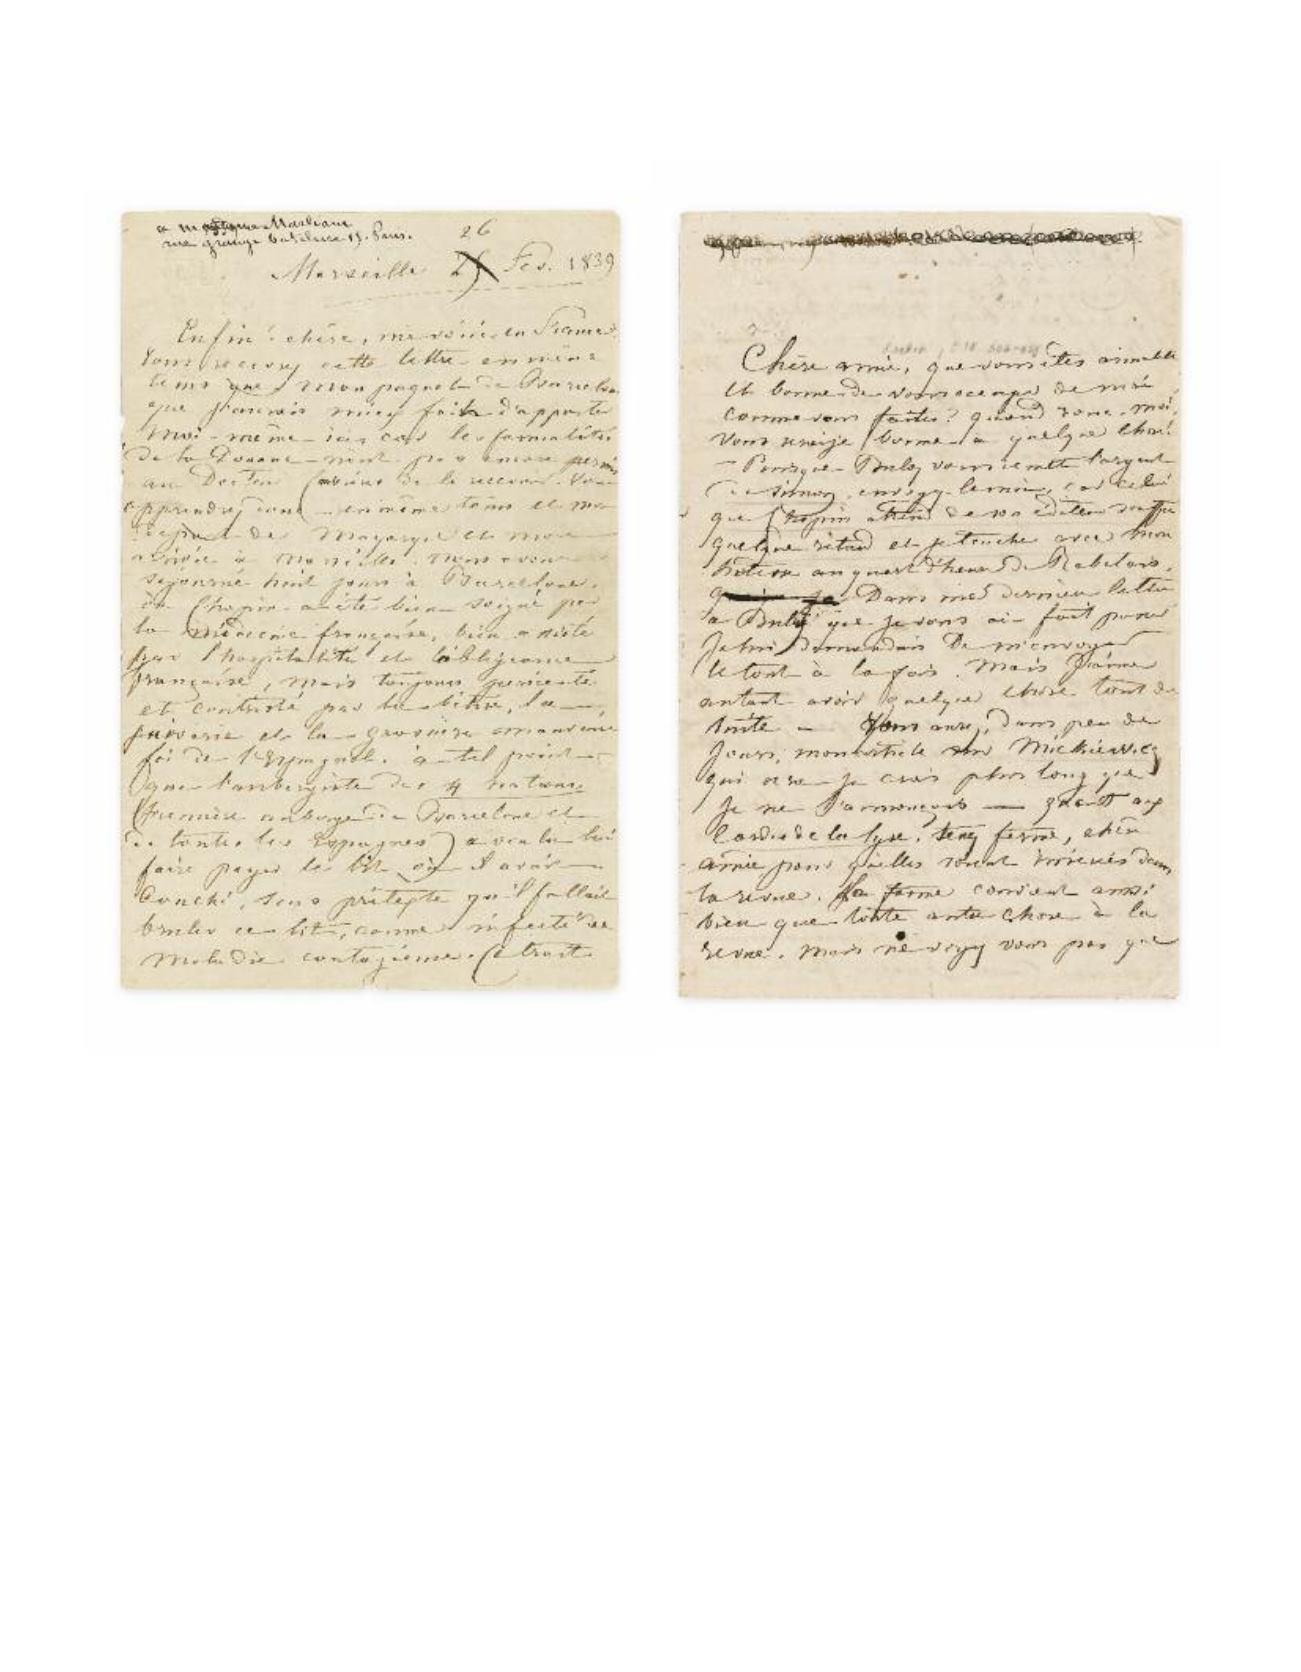 a madame Marliani
rue grange batelière 15. Paris.
26
Marseille 25 Fev. 1839
Enfin! chère, me voici en France.
Vous recevrez cette lettre en même
tems que mon paquet de Barcelone
que j'aurais mieux fait d'apporter
moi-même ici car les formalités
de la Douane n'ont pas encore permis
au Docteur de le recevoir. Vous
apprendrez donc en même tems et mon
départ de Mayorque et mon
arrivée à Marseille. nous avons
séjourné huit jours à Barcelone.
Chopin a été bien soigné par
la médecine française, bien assisté
par l'hospitalité et l'obligeance
française, mais toujours
et contristé par la bêtise, la
et la grossière mauvaise
foi de l'Espagnol. à tel point
que l'aubergiste des 4 nations
(première auberge de Barcelone et
de toutes les Espagnes) a voulu lui
faire payer le lit où il avait
couché, sous prétexte qu'il fallait
bruler ce lit, comme infecté de
maladie contagieuse. Ce trait
Chère amie, que vous êtes aimable
et bonne de vous occuper de moi
comme vous faites! quand donc, moi,
vous serai-je bonne à quelque chose!
— Puisque Buloz vous remet l'argent
de Simon, envoyez-le moi, car celui
que Chopin attend de son éditeur souffre
quelque retard et je touche avec mon
hôtesse au quart d'heure de Rabelais.
Dans mes dernieres lettres
a Buloz que je vous ai fait passer
Je lui demandais De m'envoyer
le tout à la fois. Mais j'aime
autant avoir quelque chose tout de
suite — Vous aurez, dans peu de
jours, mon article sur Mickiewicz
qui sera je crois plus long que
Je ne l'annonçais — quant aux
Cordes de la lyre, tenez ferme, chère
amie pour qu'elles soient insérées dans
la revue. La forme convient aussi
bien que toute autre chose à la
revue. Mais ne voyez vous pas que